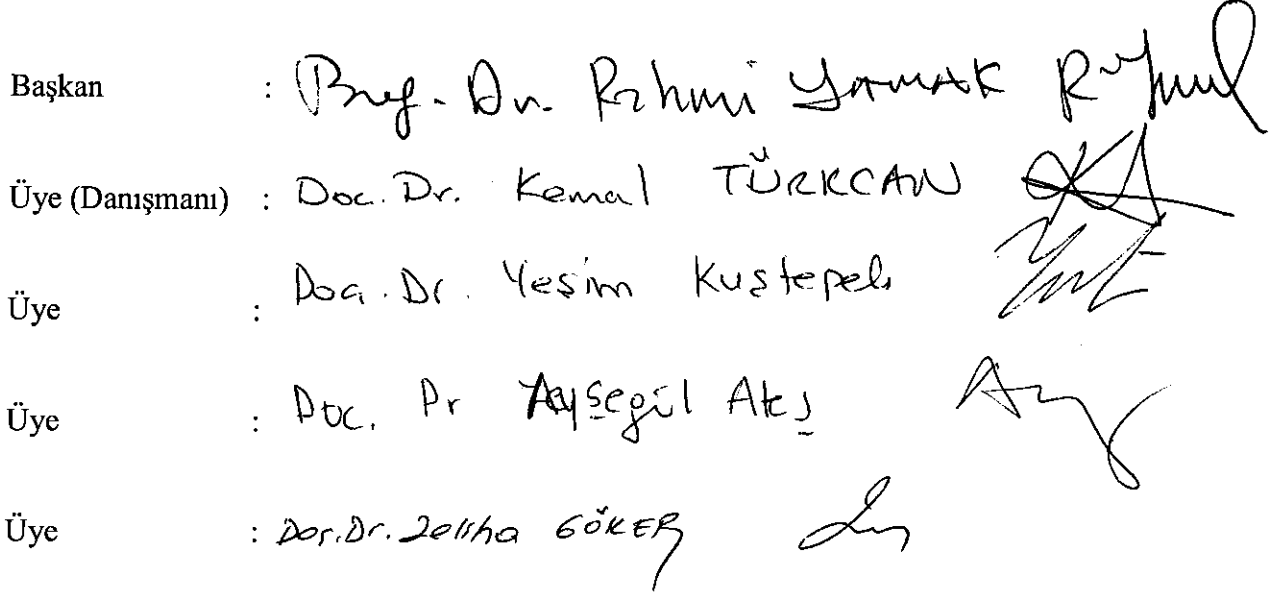 Başkan : Prof. Dr. Rahmi YAMAK
Üye (Danışmanı) : Doc. Dr. Kemal TÜRKCAN
Üye : Doç. Dr. Yeşim Kuştepeli
Üye : Doc. Dr Ayşegül Ateş
Üye : Doç. Dr. Zeliha GÖKER